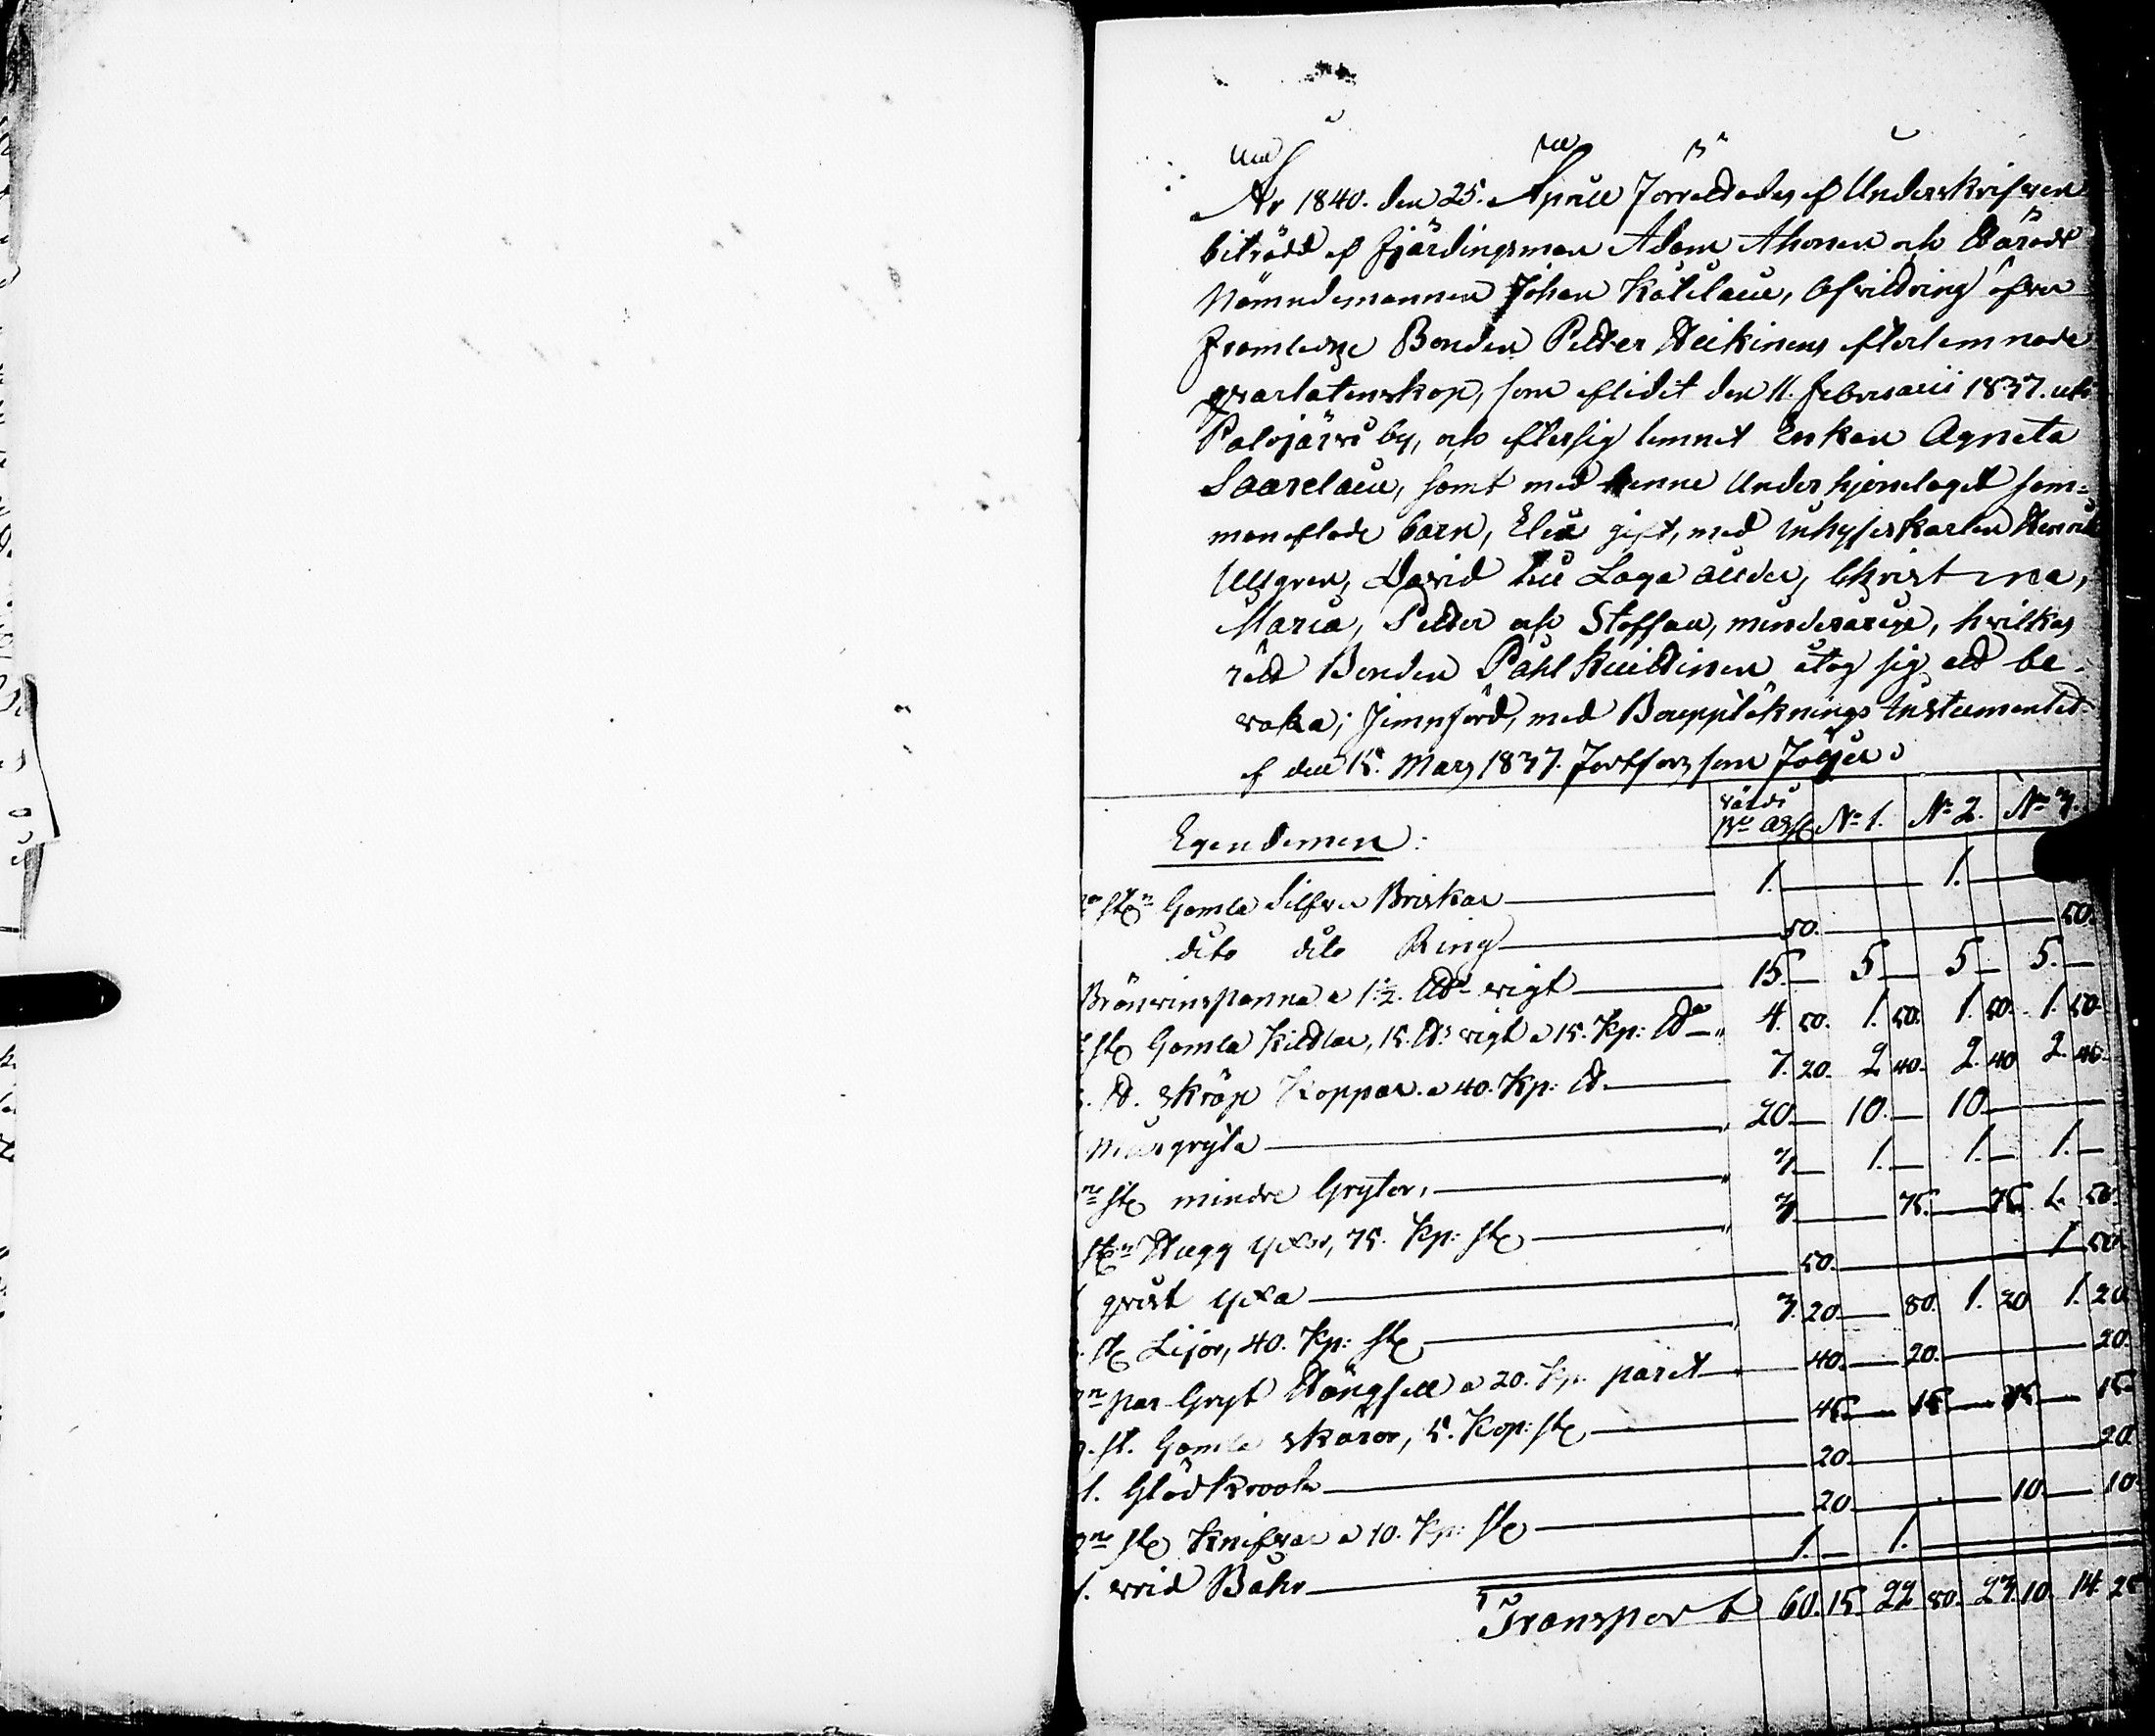 År 1840. den 25. April förrättades af Underskrifven
biträdd af fjärdingsman Adam Ahonen och Härads
Nämndemannen Johan Kälkäin, Afvittring öfver
framledne Bonden Petter Heikinens efterlemnade
qvarlåtenskap, som aflidit den 11. februarii 1837. uti
Palojärvi by, och eftersig lemnat Enkan Agneta
Saarelain, samt med henne Under hjonelaget sam=
manaflade barn, Elin gift, med Inhyseskarlen Henrik
Ullgren, David till Laga ålder, Christina,
Maria, Petter och Staffan, minderårige, hvilkas
rätt Bonden Påhl Keinänen åtog sig att be-
vaka; jemnförd, med Boupptekningsinstrumentet
af den 15. Mars 1837. fortfors som följer
Egendomen: värdt Rbr assg No 1. No 2. No 3.
st Gamla Silfver Briskor 1. 1.
dito dito Ring 50. 50.
Bränvinspanna a 1½. Ld vigt 15 5 5 5.
st Gamla Kittlar, 15. Ld: vigt a 15. Kp: Ld 4. 50. 1. 50. 1. 50. 1. 50.
Ld. skräp Koppar. a 40. Kp: Ld. 7. 20. 2 40. 2. 40 2. 40.
Murgryta 20 10. 10
st mindre Grytor, 3 1. 1. 1.
st Hugg yxor, 75. Kp: st 3 75. 75. 1. 50.
qvist yxa 50. 1 50.
st Lijor, 40. Kp: st 3. 20 80. 1. 20 1. 20
par Gryt Hängsell a 20. Kp. paret 40. 20. 20.
st. Gamla skäror, 5. Kop: st 45 15 15 15
1. Glödkrok 20 20
st Knifvar a 10. Kp: st 20 10 10
1. vrid Bohr 1. 1.
Transport 60. 15. 22 80. 23. 10. 14. 25